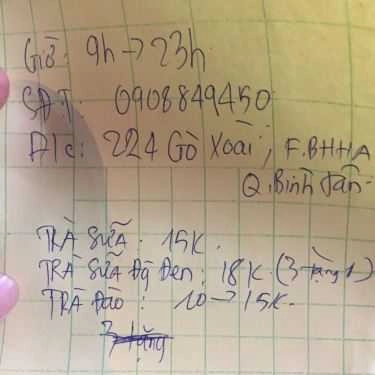 Giờ: 9h → 23h
SĐT: 0908849450
Đ/c: 224 Gò Xoài, F.BHHA
Q.Bình Tân.
TRÀ SỮA: 15K.
TRÀ SỮA Đặ Đen: 18K (3 tặng 1)
TRÀ Đào: 10 → 15K.
3 tặng